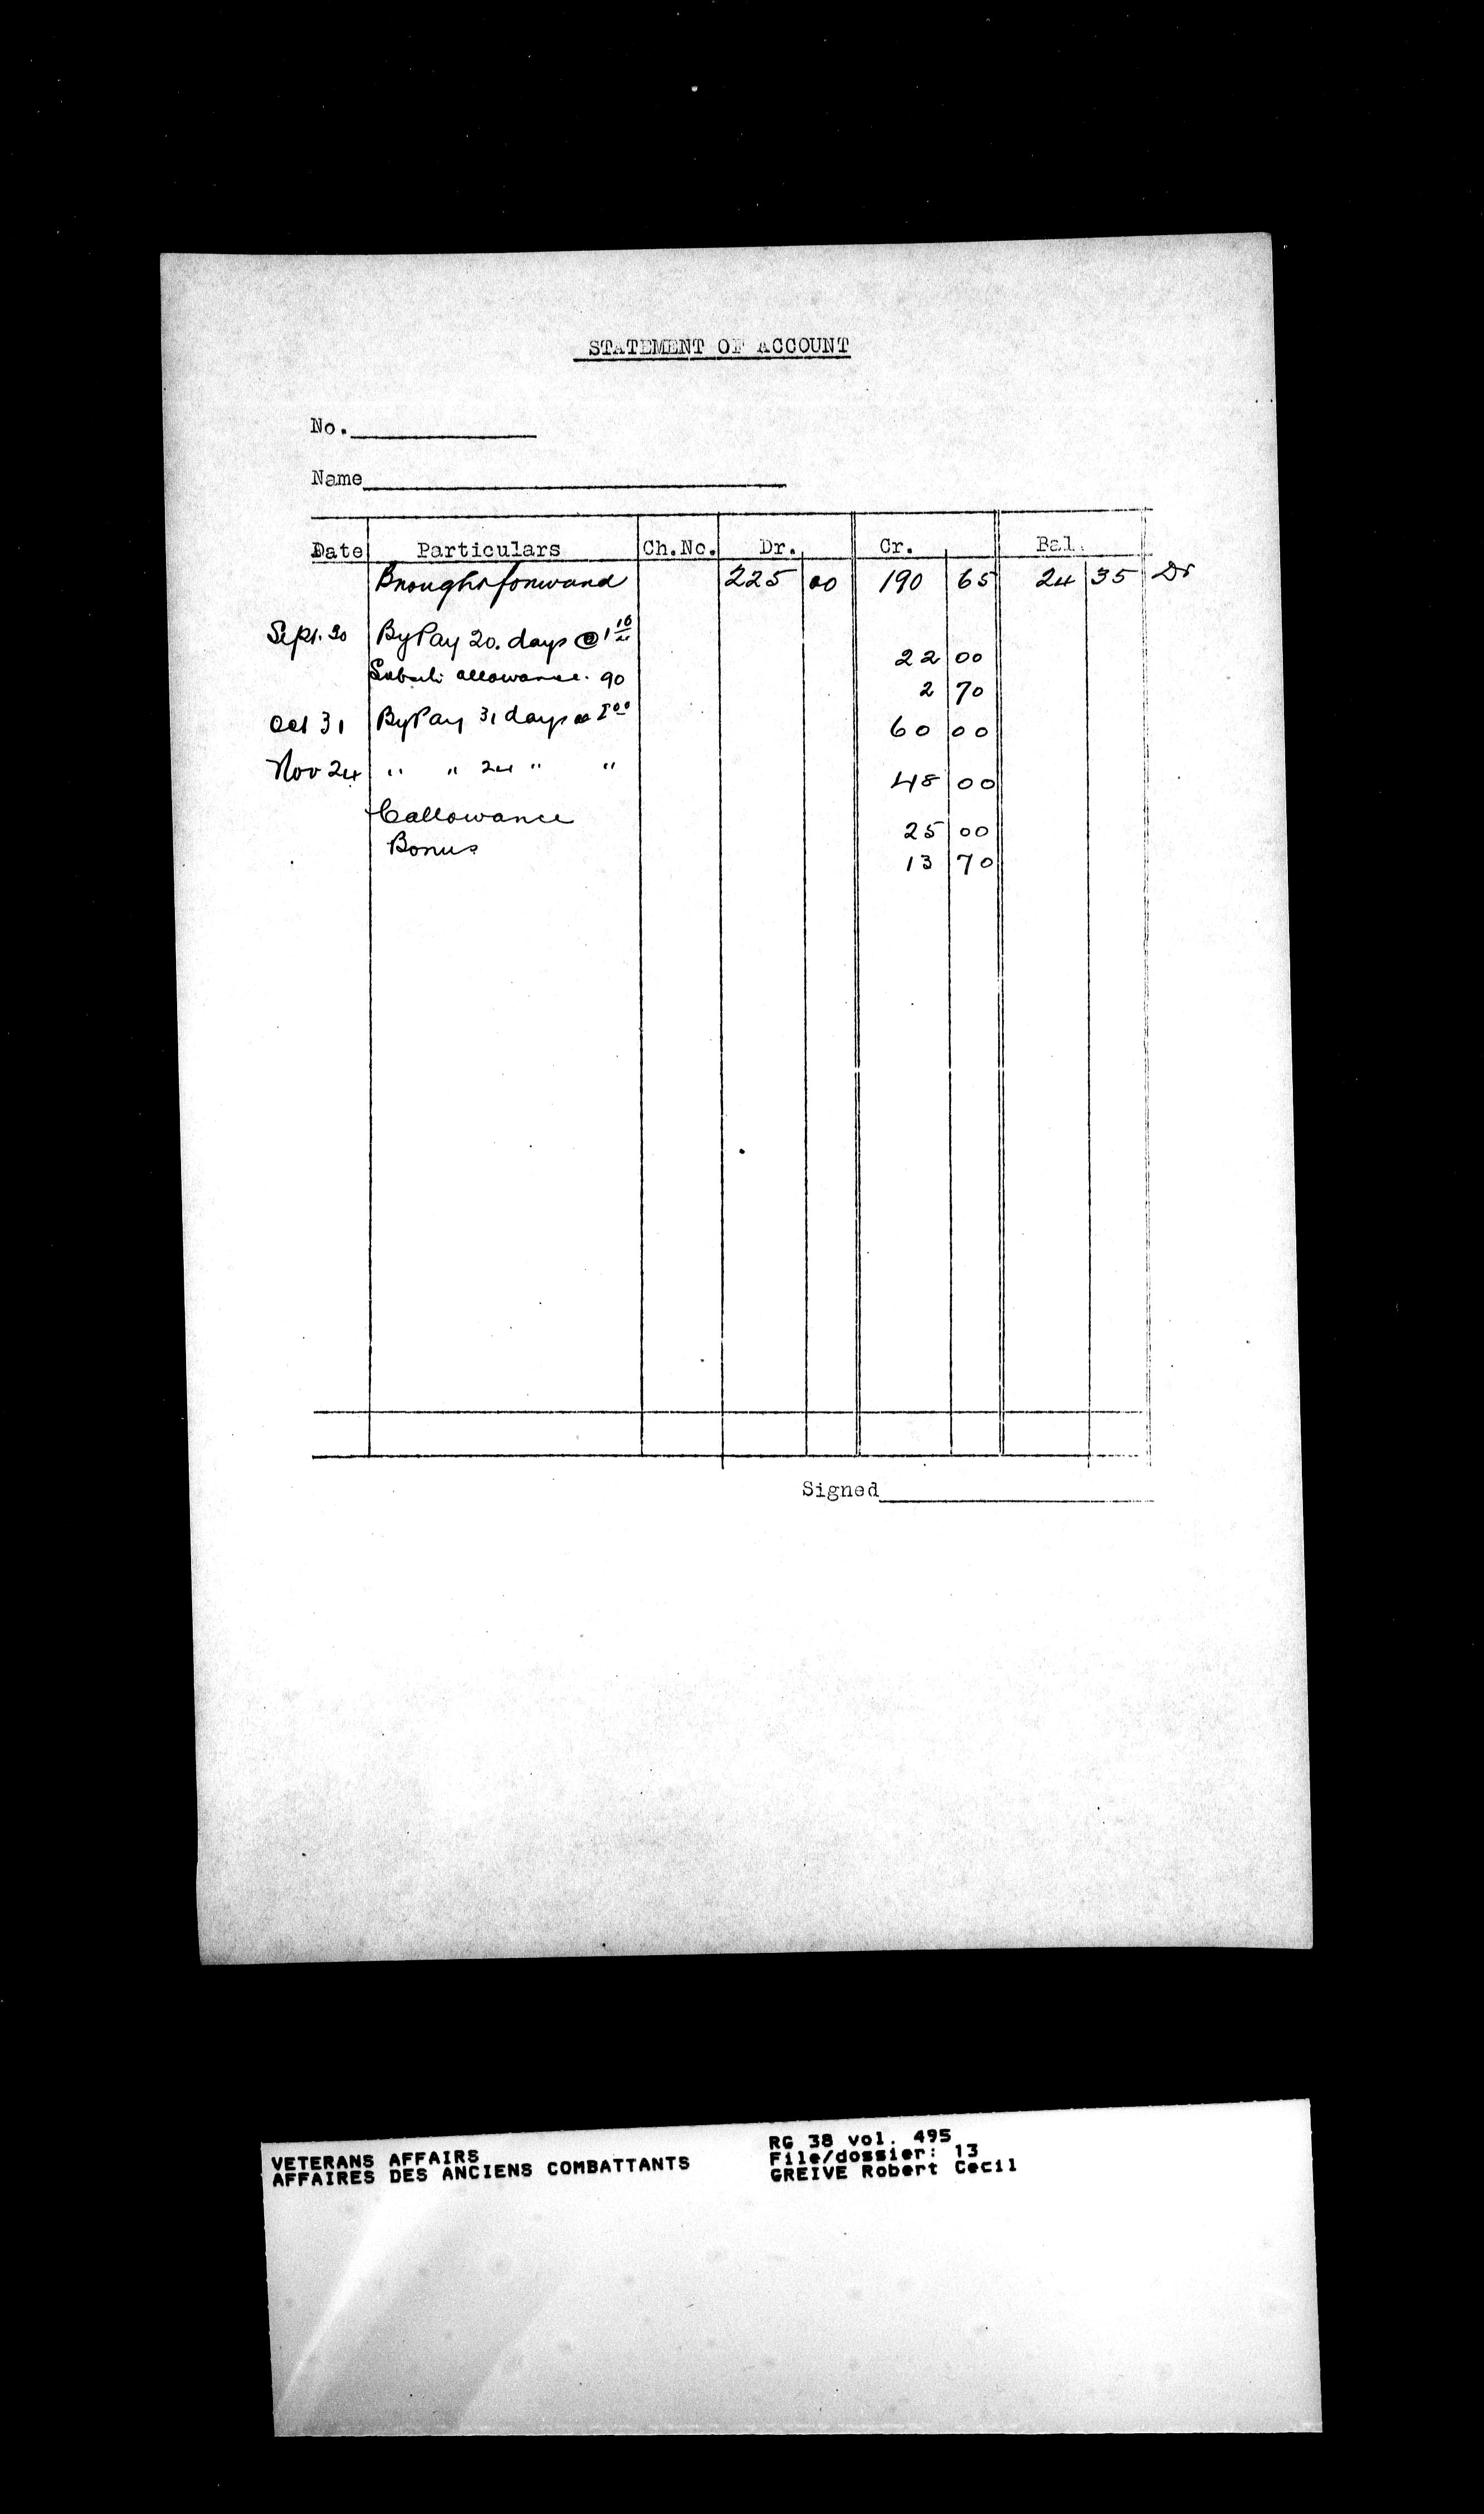 STATEMENT OF ACCOUNT
No.
Name
Date Particulars Ch.No. Dr. Cr. Bal.
Brought forward 225 00 190 65 24 35 Dr
Sept. 30 By Pay 20. days @ 1 10
22 00
allowance. 90
2 70
Oct 31 By Pay 31 days
60 00
Nov 24 " " 24 " "
48 00
C allowance
25 00
Bonus
13 70
Signed
VETERANS AFFAIRS
AFFAIRES DES ANCIENS COMBATTANTS
RG 38 vol. 495
File/dossier: 13
GREIVE Robert Cecil